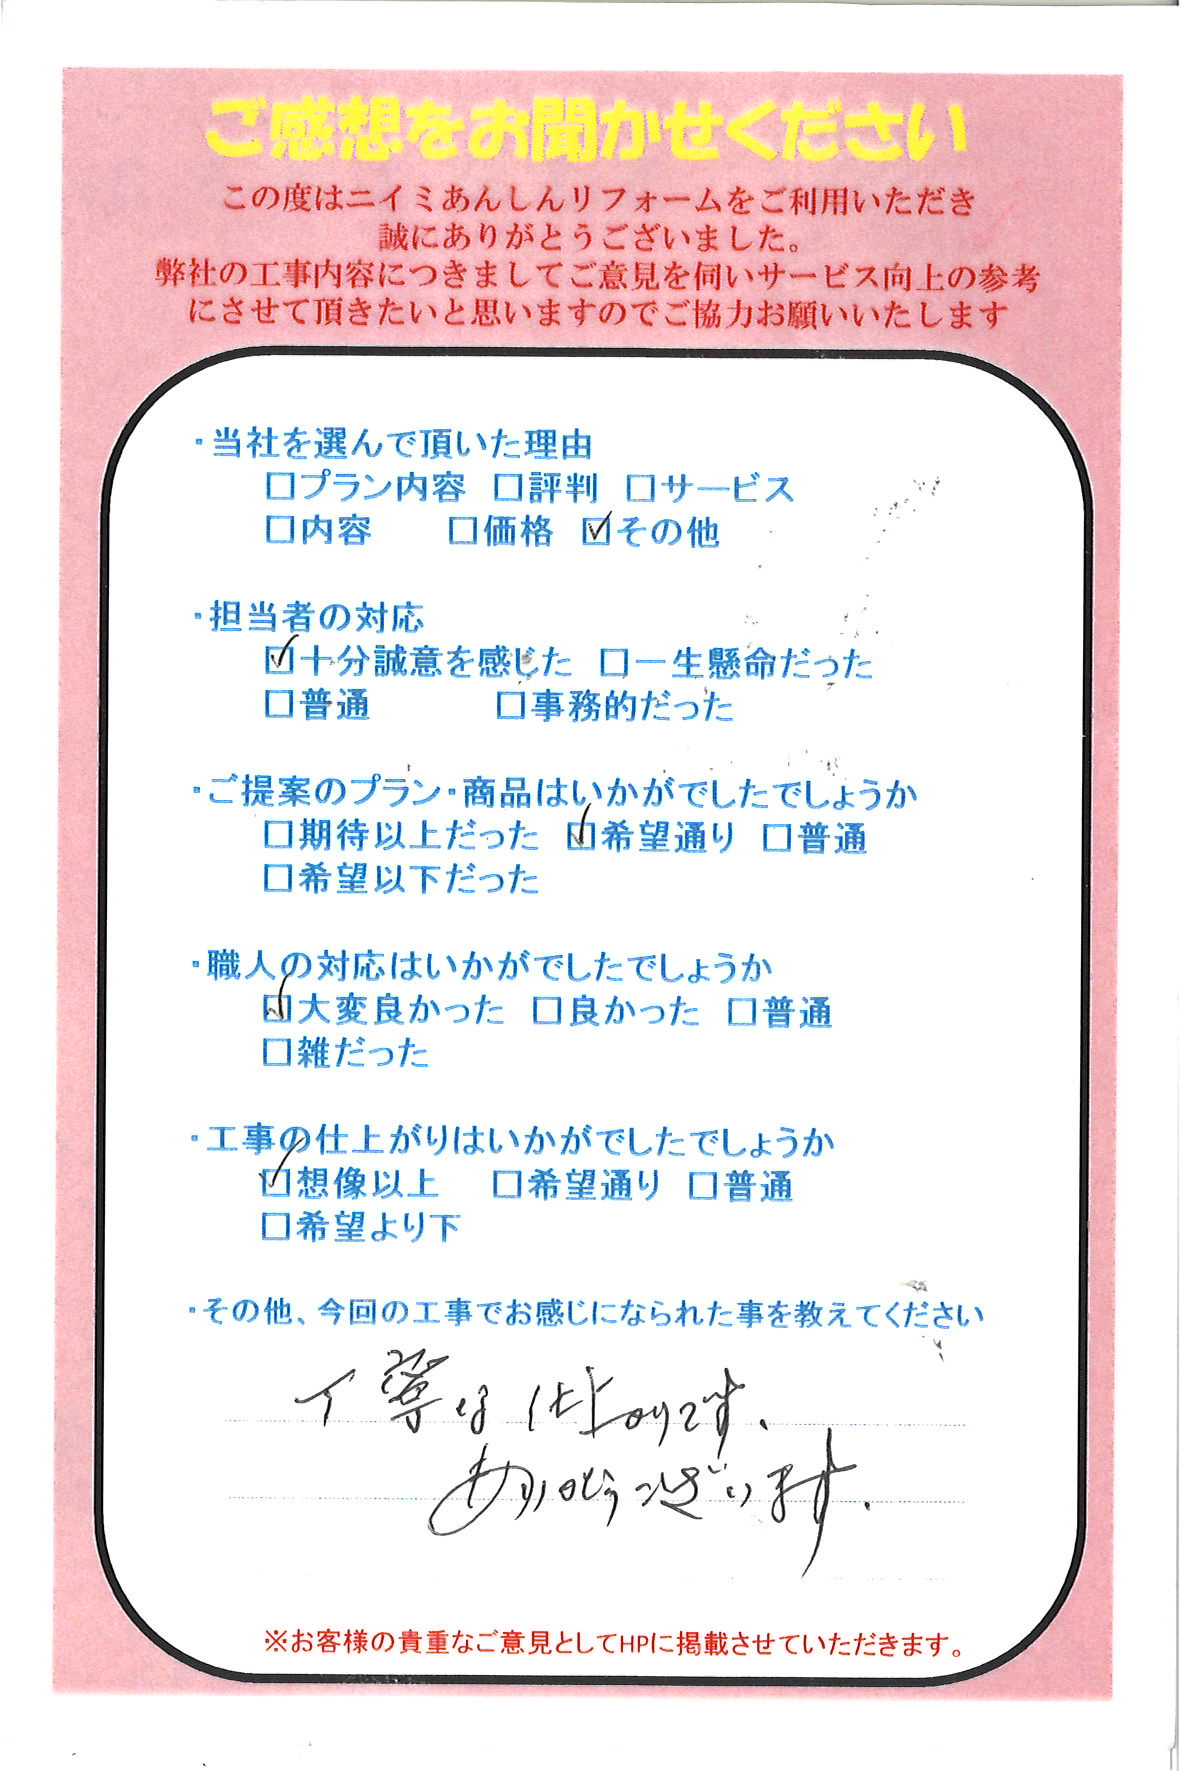 ご感想をお聞かせください
この度はニイミあんしんリフォームをご利用いただき
誠にありがとうございました。
弊社の工事内容につきましてご意見を伺いサービス向上の参考
にさせて頂きたいと思いますのでご協力お願いいたします
・当社を選んで頂いた理由
□プラン内容 □評判 □サービス
□内容 □価格 ☑その他
・担当者の対応
☑十分誠意を感じた □一生懸命だった
□普通 □事務的だった
・ご提案のプラン・商品はいかがでしたでしょうか
□期待以上だった ☑希望通り □普通
□希望以下だった
・職人の対応はいかがでしたでしょうか
☑大変良かった □良かった □普通
□雑だった
・工事の仕上がりはいかがでしたでしょうか
☑想像以上 □希望通り □普通
□希望より下
・その他、今回の工事でお感じになられた事を教えてください
丁寧な仕上りです。
ありがとうございます。
※お客様の貴重なご意見としてHPに掲載させていただきます。